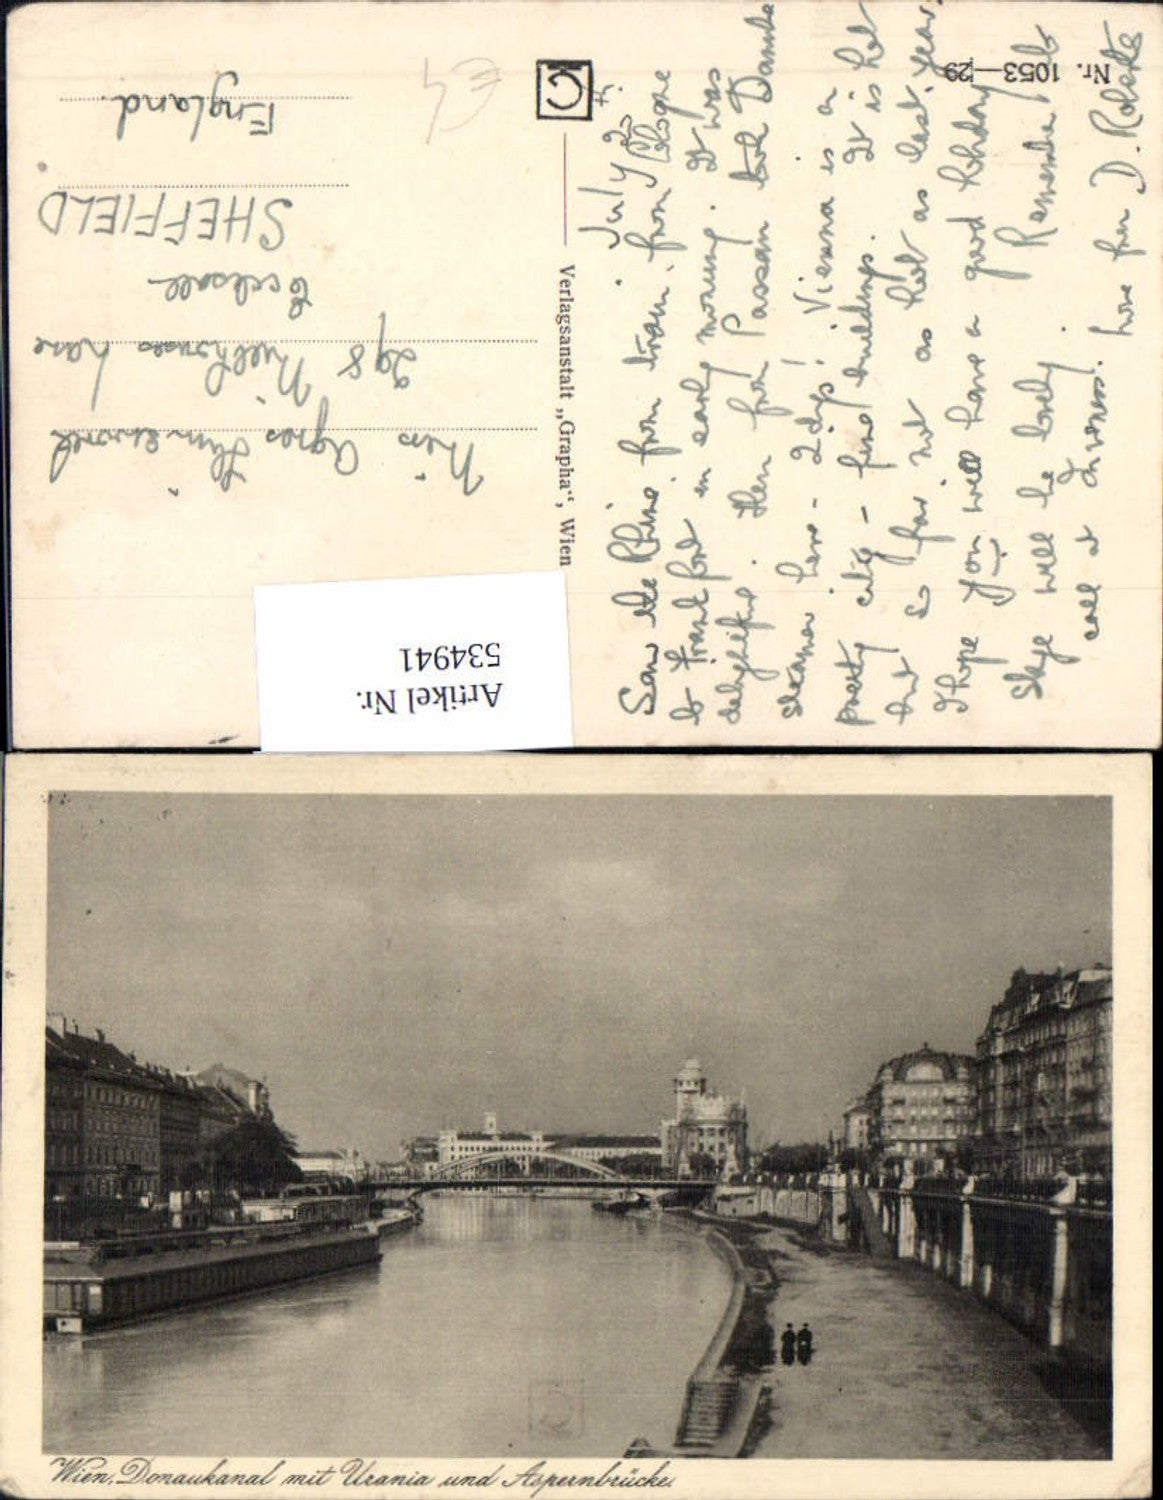 July 25th.
Saw the Rhine from train, from Cologne
to Frankfort in early morning. It was
delightful. Then from Passau took Danube
steamer here - 2 days! Vienna is a
pretty city - fine buildings. It is hot
but so far not as hot as last year.
I hope you will have a good holiday
Skye will be lovely. Remember to
call at Inverness. Love from D. Roberts
Nr. 1053—29
G
Verlagsanstalt „Grapha“, Wien
Miss Agnes
298 Millhouses Lane
Ecclesall
SHEFFIELD
England.
€4
Artikel Nr.
534941
Wien, Donaukanal mit Urania und Aspernbrücke.